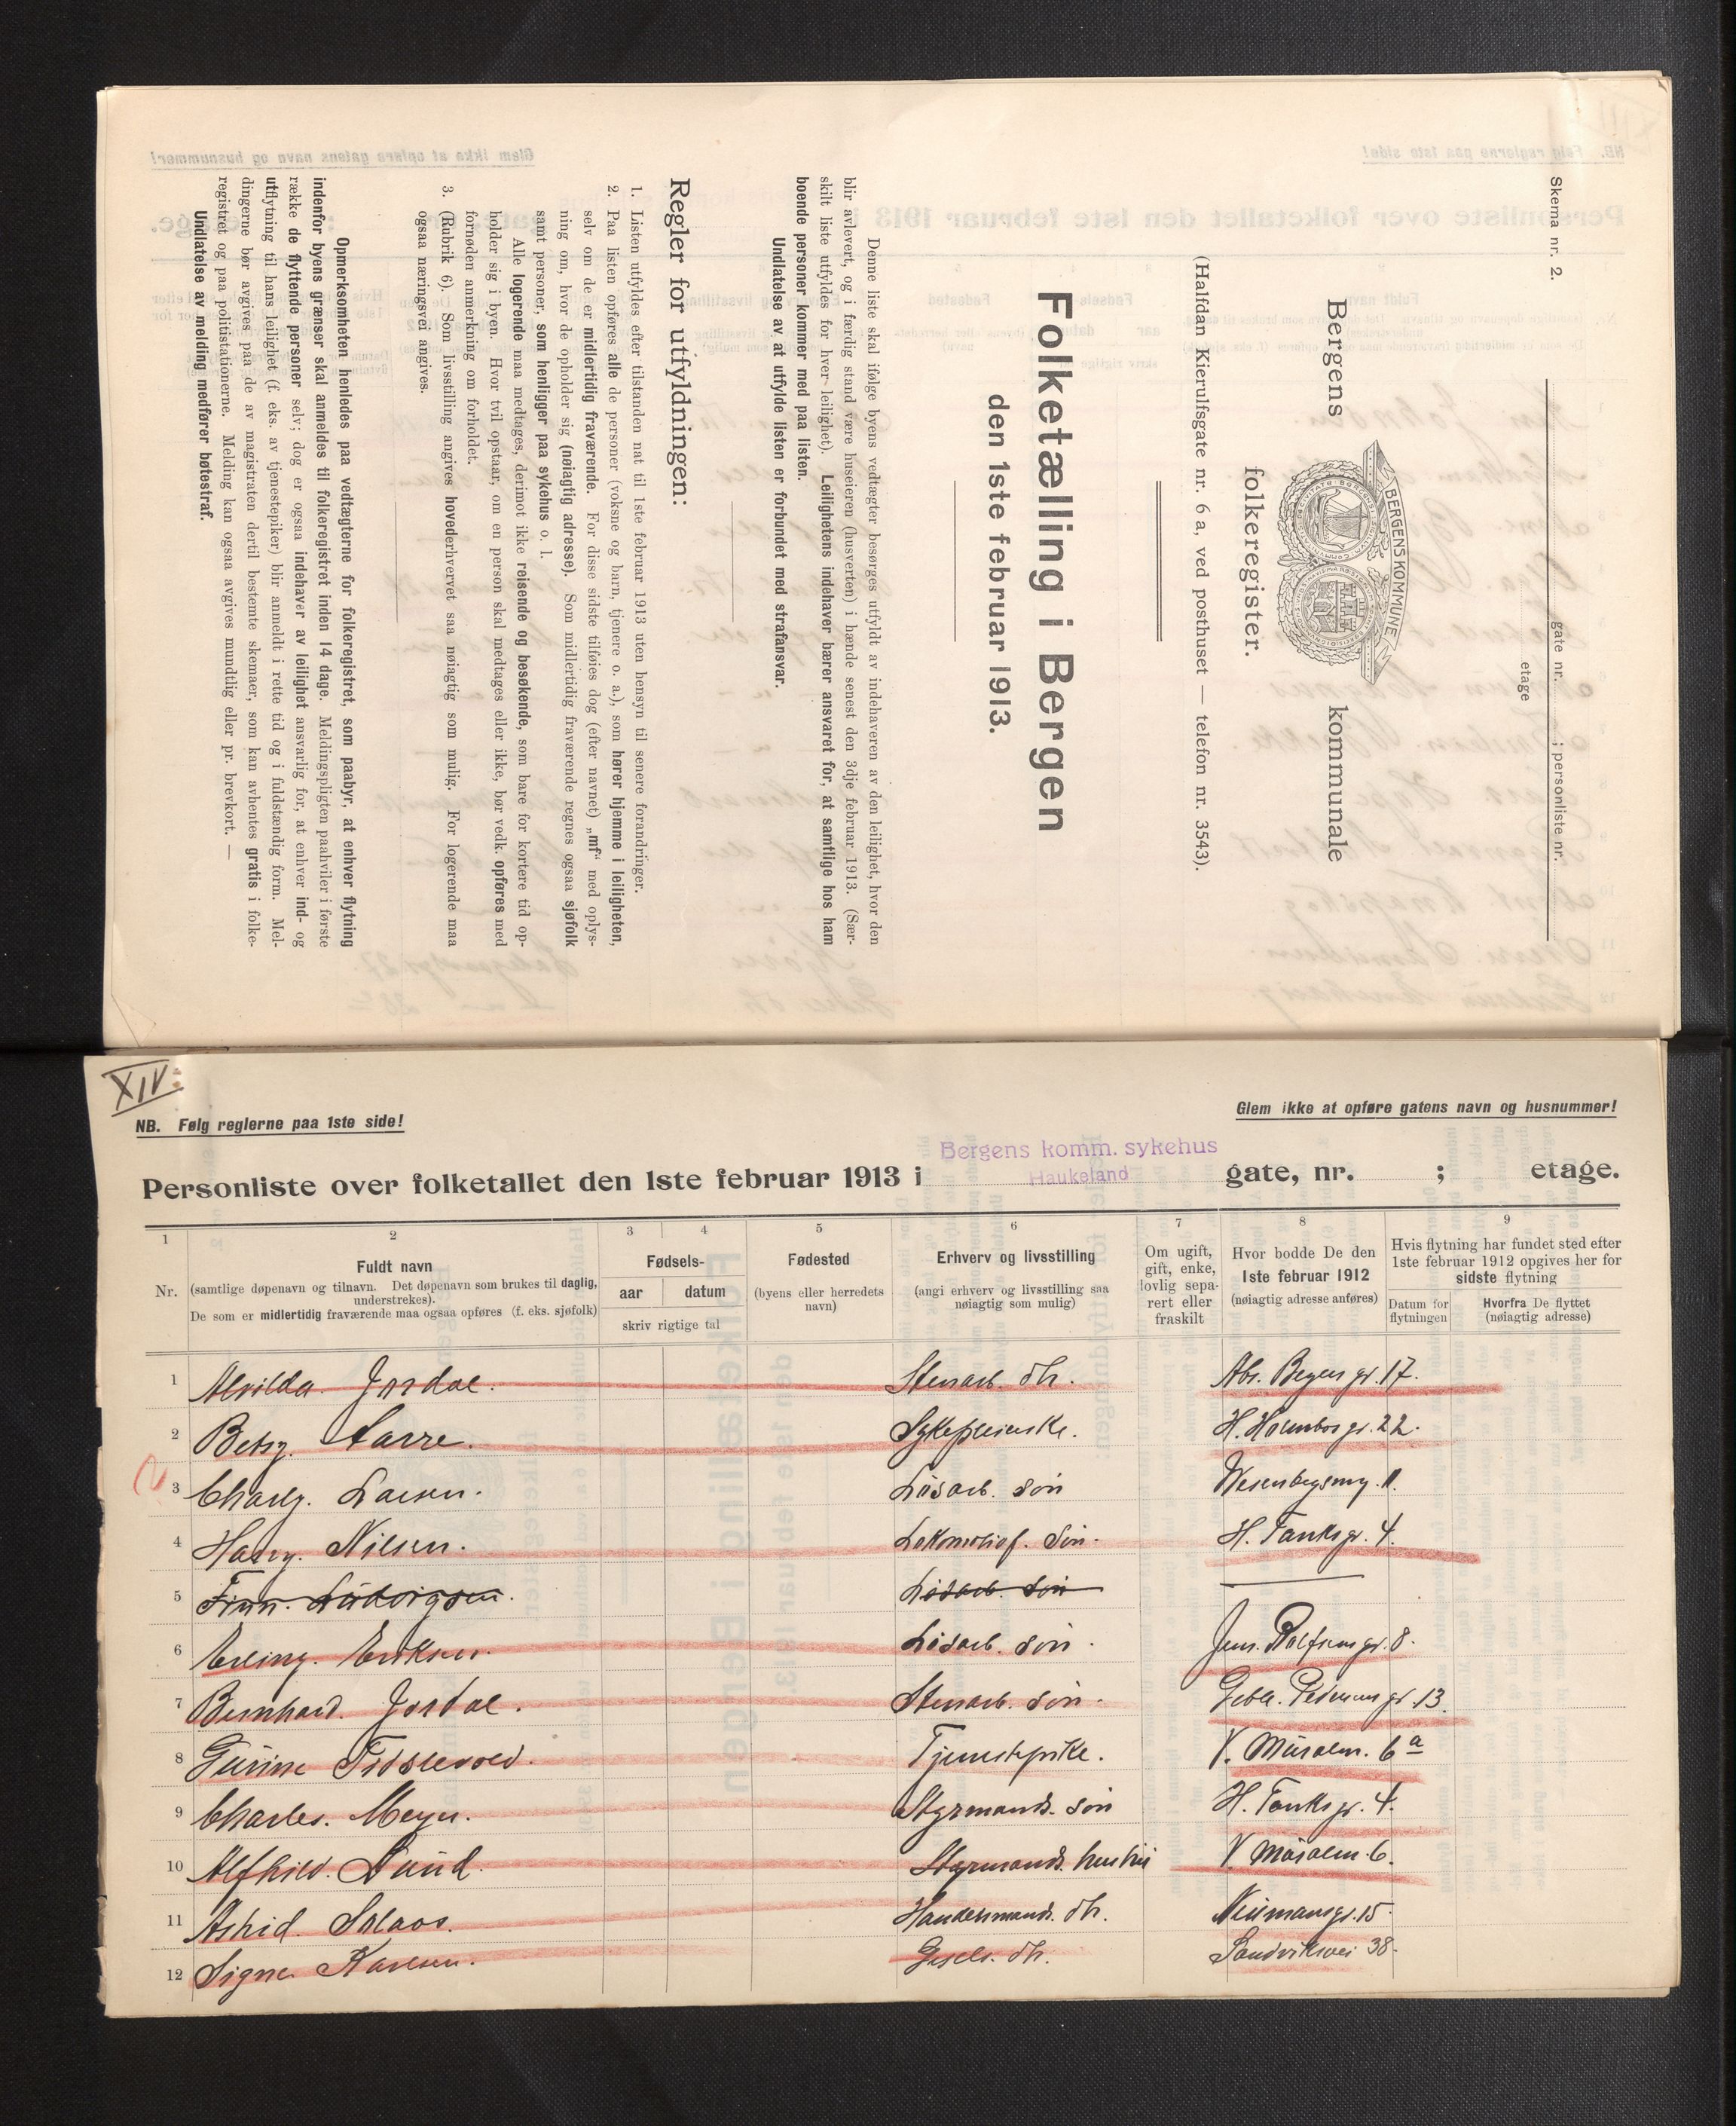 Skema nr. 2.
gate nr. ; personliste nr.
etage
BERGENS KOMMUNE
Bergens kommunale
folkeregister.
(Halfdan Kierulfsgate nr. 6 a, ved posthuset — telefon nr. 3543).
Folketælling i Bergen
den 1ste februar 1913.
Denne liste skal ifølge byens vedtægter besørges utfyldt av indehaveren av den leilighet, hvor den
blir avlevert, og i færdig stand være huseieren (husverten) i hænde senest den 3dje februar 1913. (Sær-
skilt liste utfyldes for hver leilighet). Leilighetens indehaver bærer ansvaret for, at samtlige hos ham
boende personer kommer med paa listen.
Undlatelse av at utfylde listen er forbundet med strafansvar.
Regler for utfyldningen:
1. Listen utfyldes efter tilstanden nat til 1ste februar 1913 uten hensyn til senere forandringer.
2. Paa listen opføres alle de personer (voksne og barn, tjenere o. a.), som hører hjemme i leiligheten,
selv om de er midlertidig fraværende. For disse sidste tilføies dog (efter navnet) „mf“ med oplys-
ning om, hvor de opholder sig (nøiagtig adresse). Som midlertidig fraværende regnes ogsaa sjøfolk
samt personer, som henligger paa sykehus o. l.
Alle logerende maa medtages, derimot ikke reisende og besøkende, som bare for kortere tid op-
holder sig i byen. Hvor tvil opstaar, om en person skal medtages eller ikke, bør vedk. opføres med
fornøden anmerkning om forholdet.
3. (Rubrik 6). Som livsstilling angives hovederhvervet saa nøiagtig som mulig. For logerende maa
ogsaa næringsvei angives.
Opmerksomheten henledes paa vedtægterne for folkeregistret, som paabyr, at enhver flytning
indenfor byens grænser skal anmeldes til folkeregistret inden 14 dage. Meldingspligten paahviler i første
række de flyttende personer selv; dog er ogsaa indehaver av leilighet ansvarlig for, at enhver ind- og
utflytning til hans leilighet (f. eks. av tjenestepiker) blir anmeldt i rette tid og i fuldstændig form. Mel-
dingerne bør avgives paa de av magistraten dertil bestemte skemaer, som kan avhentes gratis i folke-
registret og paa politistationerne. Melding kan ogsaa avgives mundtlig eller pr. brevkort. —
Undlatelse av melding medfører bøtestraf.
XIV:
NB. Følg reglerne paa 1ste side!
Glem ikke at opføre gatens navn og husnummer!
Bergens komm. sykehus
Haukeland
Personliste over folketallet den 1ste februar 1913 i gate, nr. ; etage.
1 2 3 4 5 6 7 8 9
Nr.
Fuldt navn
(samtlige døpenavn og tilnavn. Det døpenavn som brukes til daglig,
understrekes).
De som er midlertidig fraværende maa ogsaa opføres (f. eks. sjøfolk)
Fødsels-
aar datum
skriv rigtige tal
Fødested
(byens eller herredets
navn)
Erhverv og livsstilling
(angi erhverv og livsstilling saa
nøiagtig som mulig)
Om ugift,
gift, enke,
lovlig sepa-
rert eller
fraskilt
Hvor bodde De den
1ste februar 1912
(nøiagtig adresse anføres)
Hvis flytning har fundet sted efter
1ste februar 1912 opgives her for
sidste flytning
Datum for
flytningen
Hvorfra De flyttet
(nøiagtig adresse)
1 Alvilda. Jordal. Stenarb. dtr. Abs. Beyersgt. 17.
2 Betsy. Aarre. Sykepleierske. H. Holmboesgt. 22.
3 Charly. Larsen. Løsarb. søn Wesenbergsmg. 11.
4 Harry. Nilsen. Lokomotivf. Søn. H. Tanksgt. 4.
5 Finn. Ludvigsen. Løsarb. søn
6 Erling. Eriksen. Løsarb. søn. Jens. Rolfsensgt. 8.
7 Bernhard. Jordal. Stenarb. søn. Geble. Pedersensgt. 13.
8 Gurine Tjenstepike. V. Muralm. 6a
9 Charles. Meyer. Styrmands. søn H. Tanksgt. 4.
10 Alfhild. Lund. Styrmands. hustru V. Muralm. 6.
11 Astrid. Solaas. Handelsmand. dtr. Neumansgt. 15.
12 Signe Karlsen. Gesels. dtr. Sandviksvei 38.